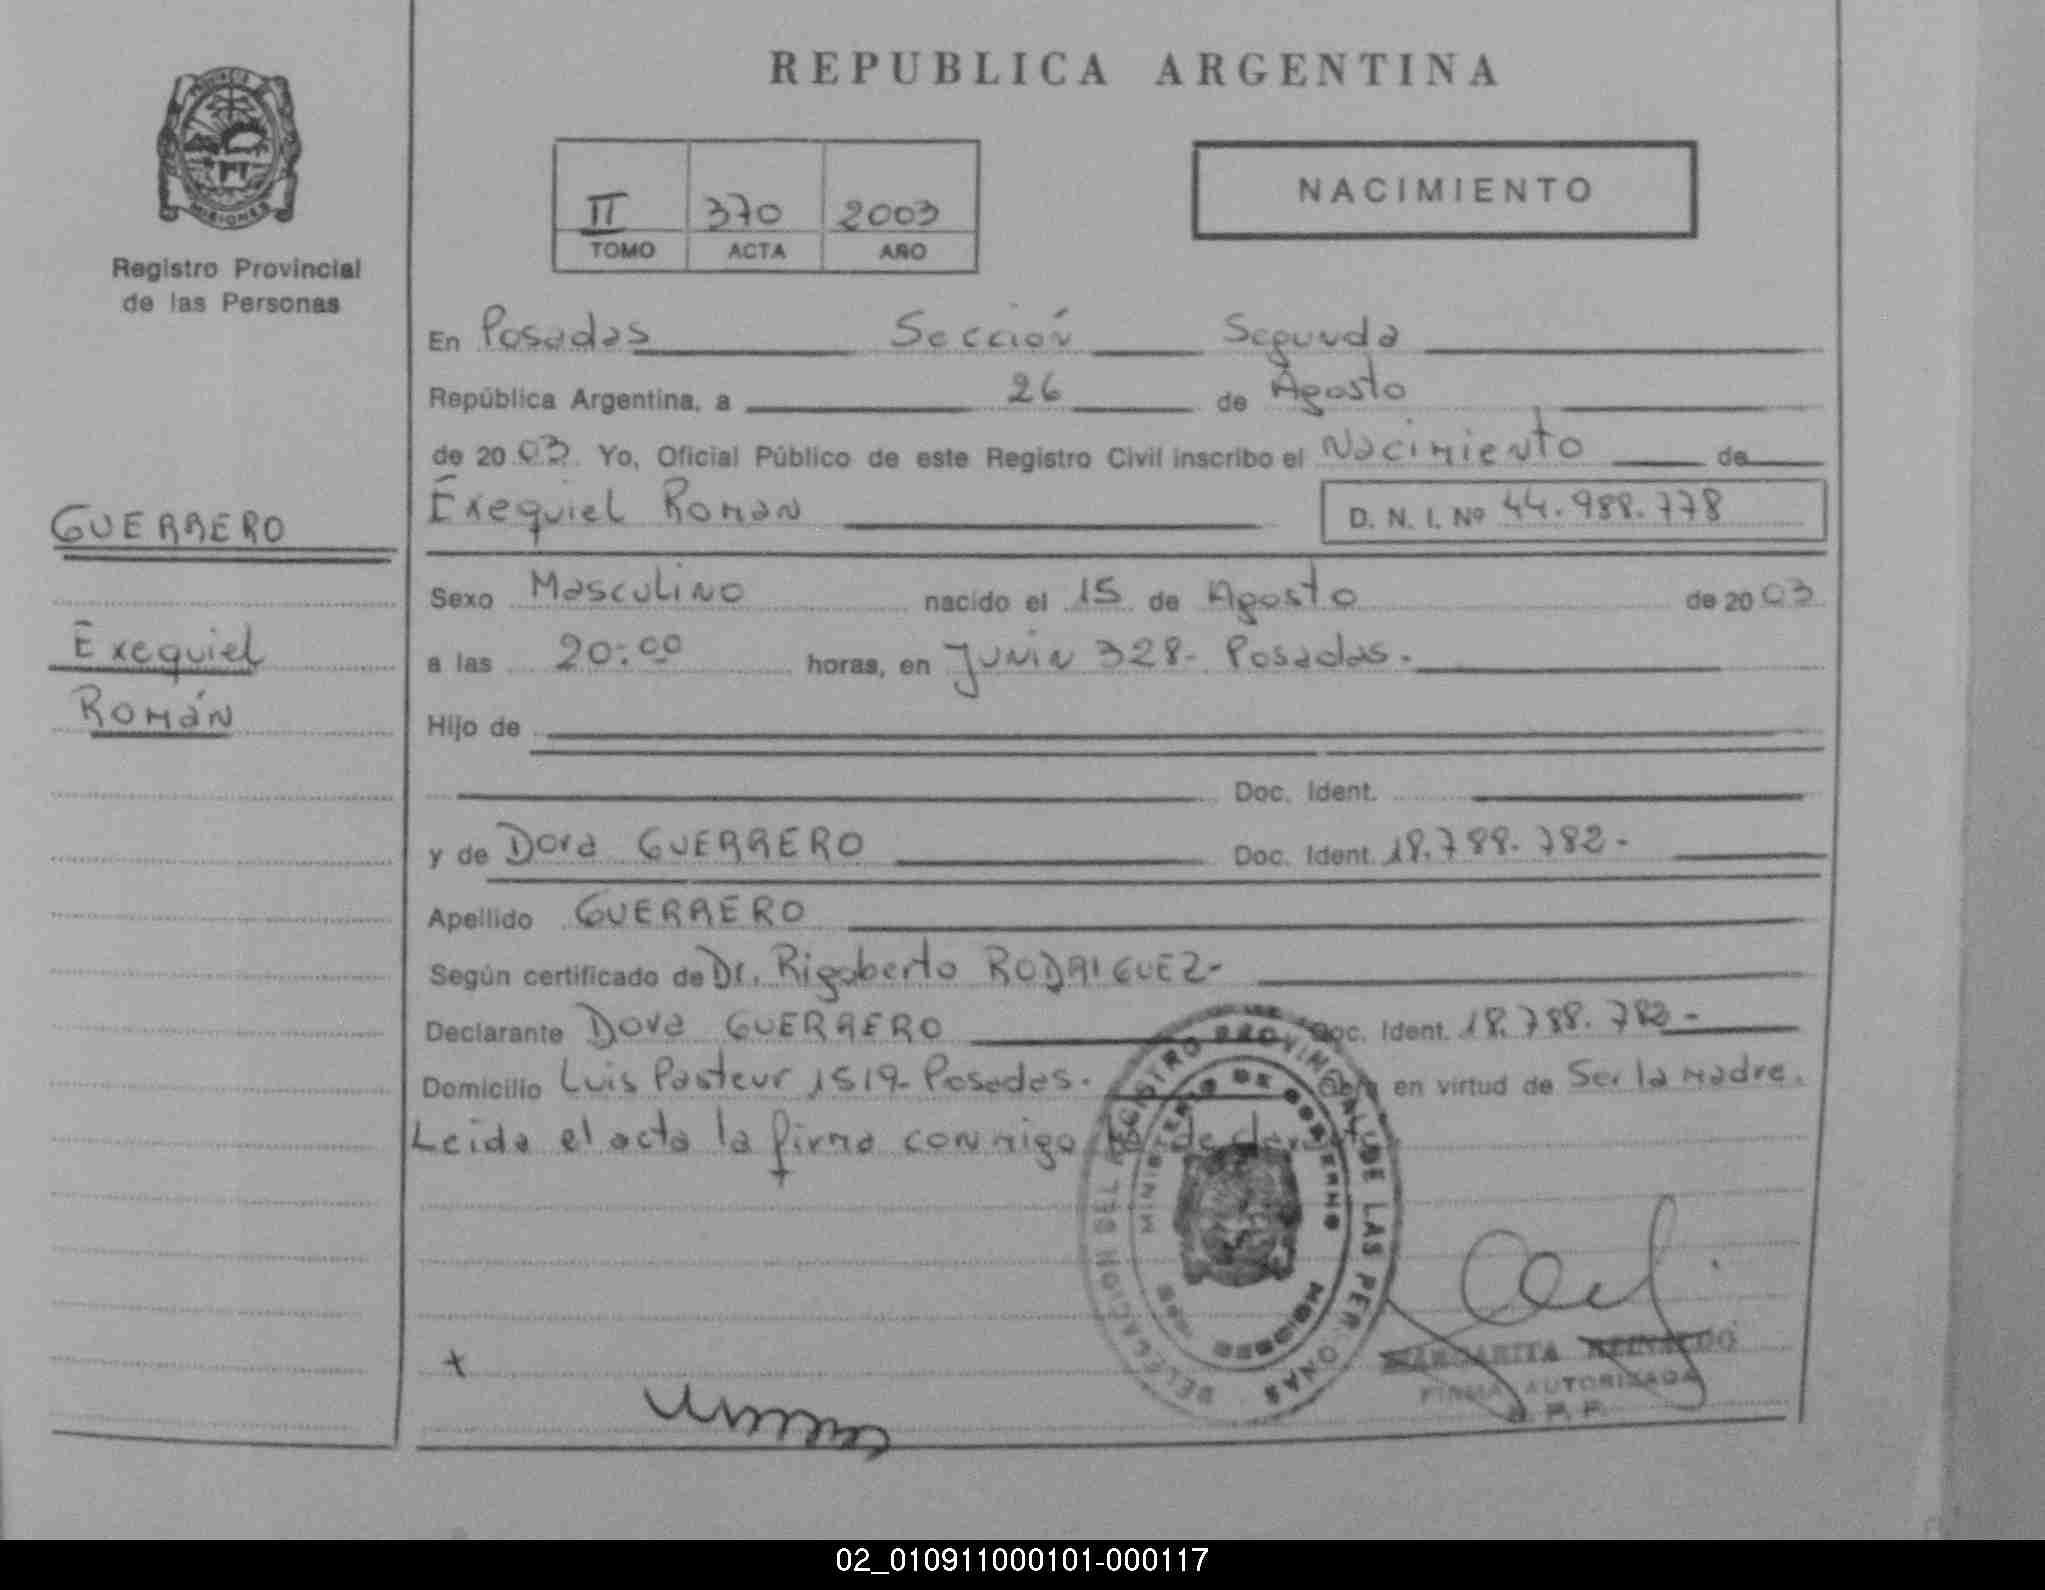 REPUBLICA ARGENTINA
PROVINCIA DE MISIONES
Registro Provincial
de las Personas
II 370 2003
TOMO ACTA AÑO
NACIMIENTO
GUERRERO
Exequiel
Román
En Posadas Sección Segunda
República Argentina, a 26 de Agosto
de 2003. Yo, Oficial Público de este Registro Civil inscribo el Nacimiento de
Exequiel Roman D. N. I. Nº 44.988.778
Sexo Masculino nacido el 15 de Agosto de 2003
a las 20:00 horas, en Junin 328- Posadas.
Hijo de
Doc. Ident.
y de Dora GUERRERO Doc. Ident. 18.788.782-
Apellido GUERRERO
Según certificado de Dr. Rigoberto RODRIGUEZ-
Declarante Dora GUERRERO Doc. Ident. 18.788.782-
Domicilio Luis Pasteur 1519- Posadas. en virtud de Ser la madre.
Leida el acta la firma conmigo
DELEGACION DEL REGISTRO PROVINCIAL DE LAS PERSONAS
MINISTERIO DE GOBIERNO
MARGARITA REINALDO
FIRMA AUTORIZADA
02_010911000101-000117